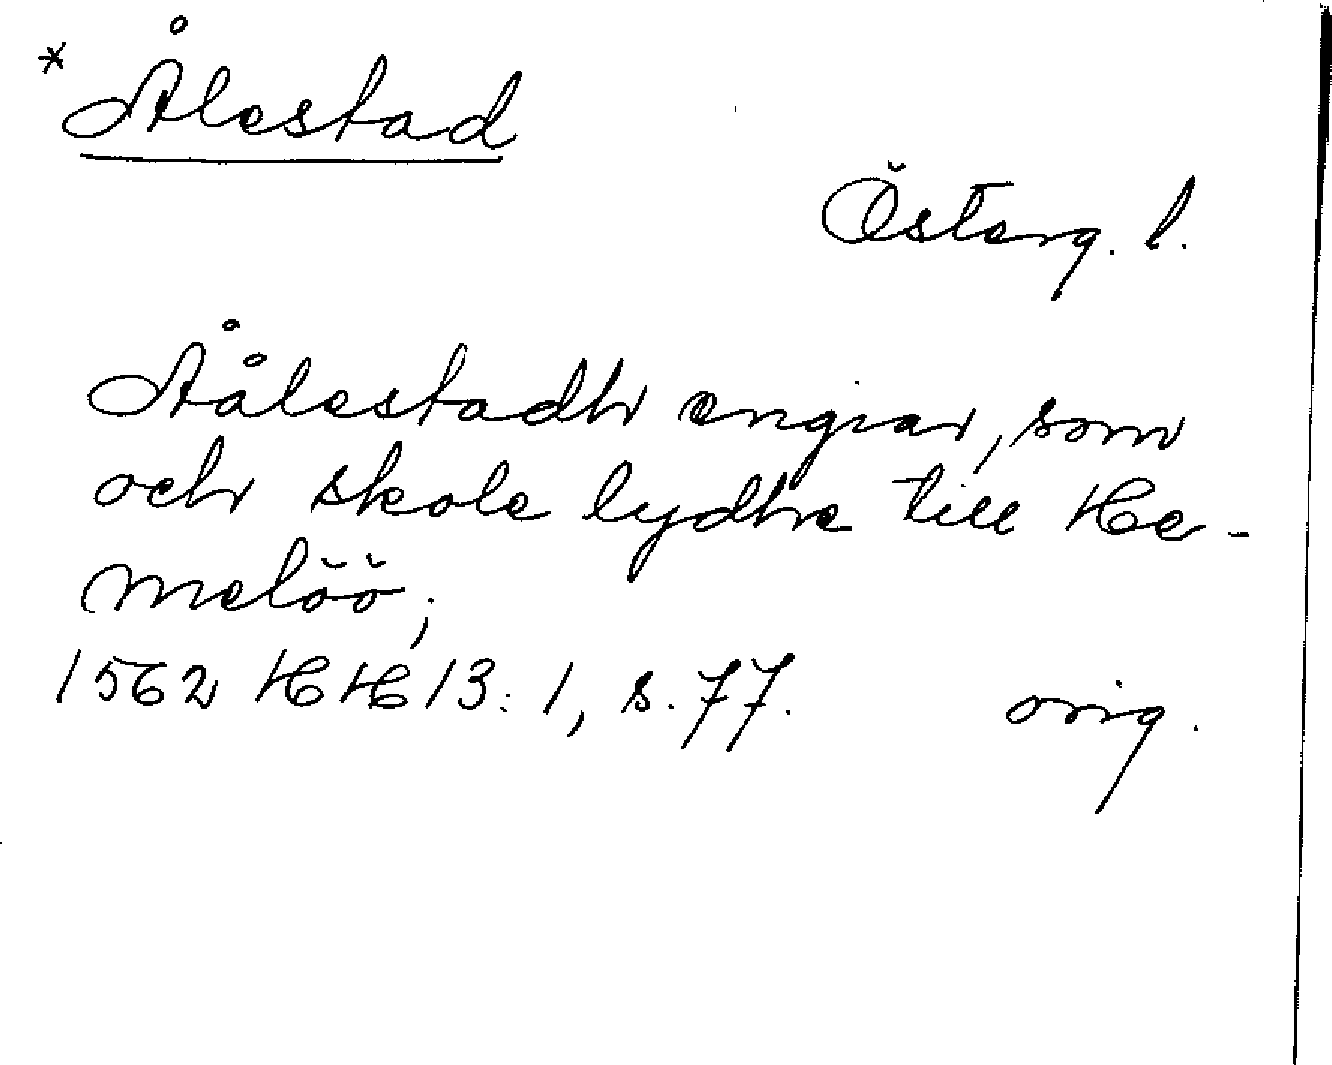 * Ålestad
Österg. l.
Åålestadh engiar, som
och skole lydhe till He-
melöö;
1562 HH 13:1, s. 77. orig.